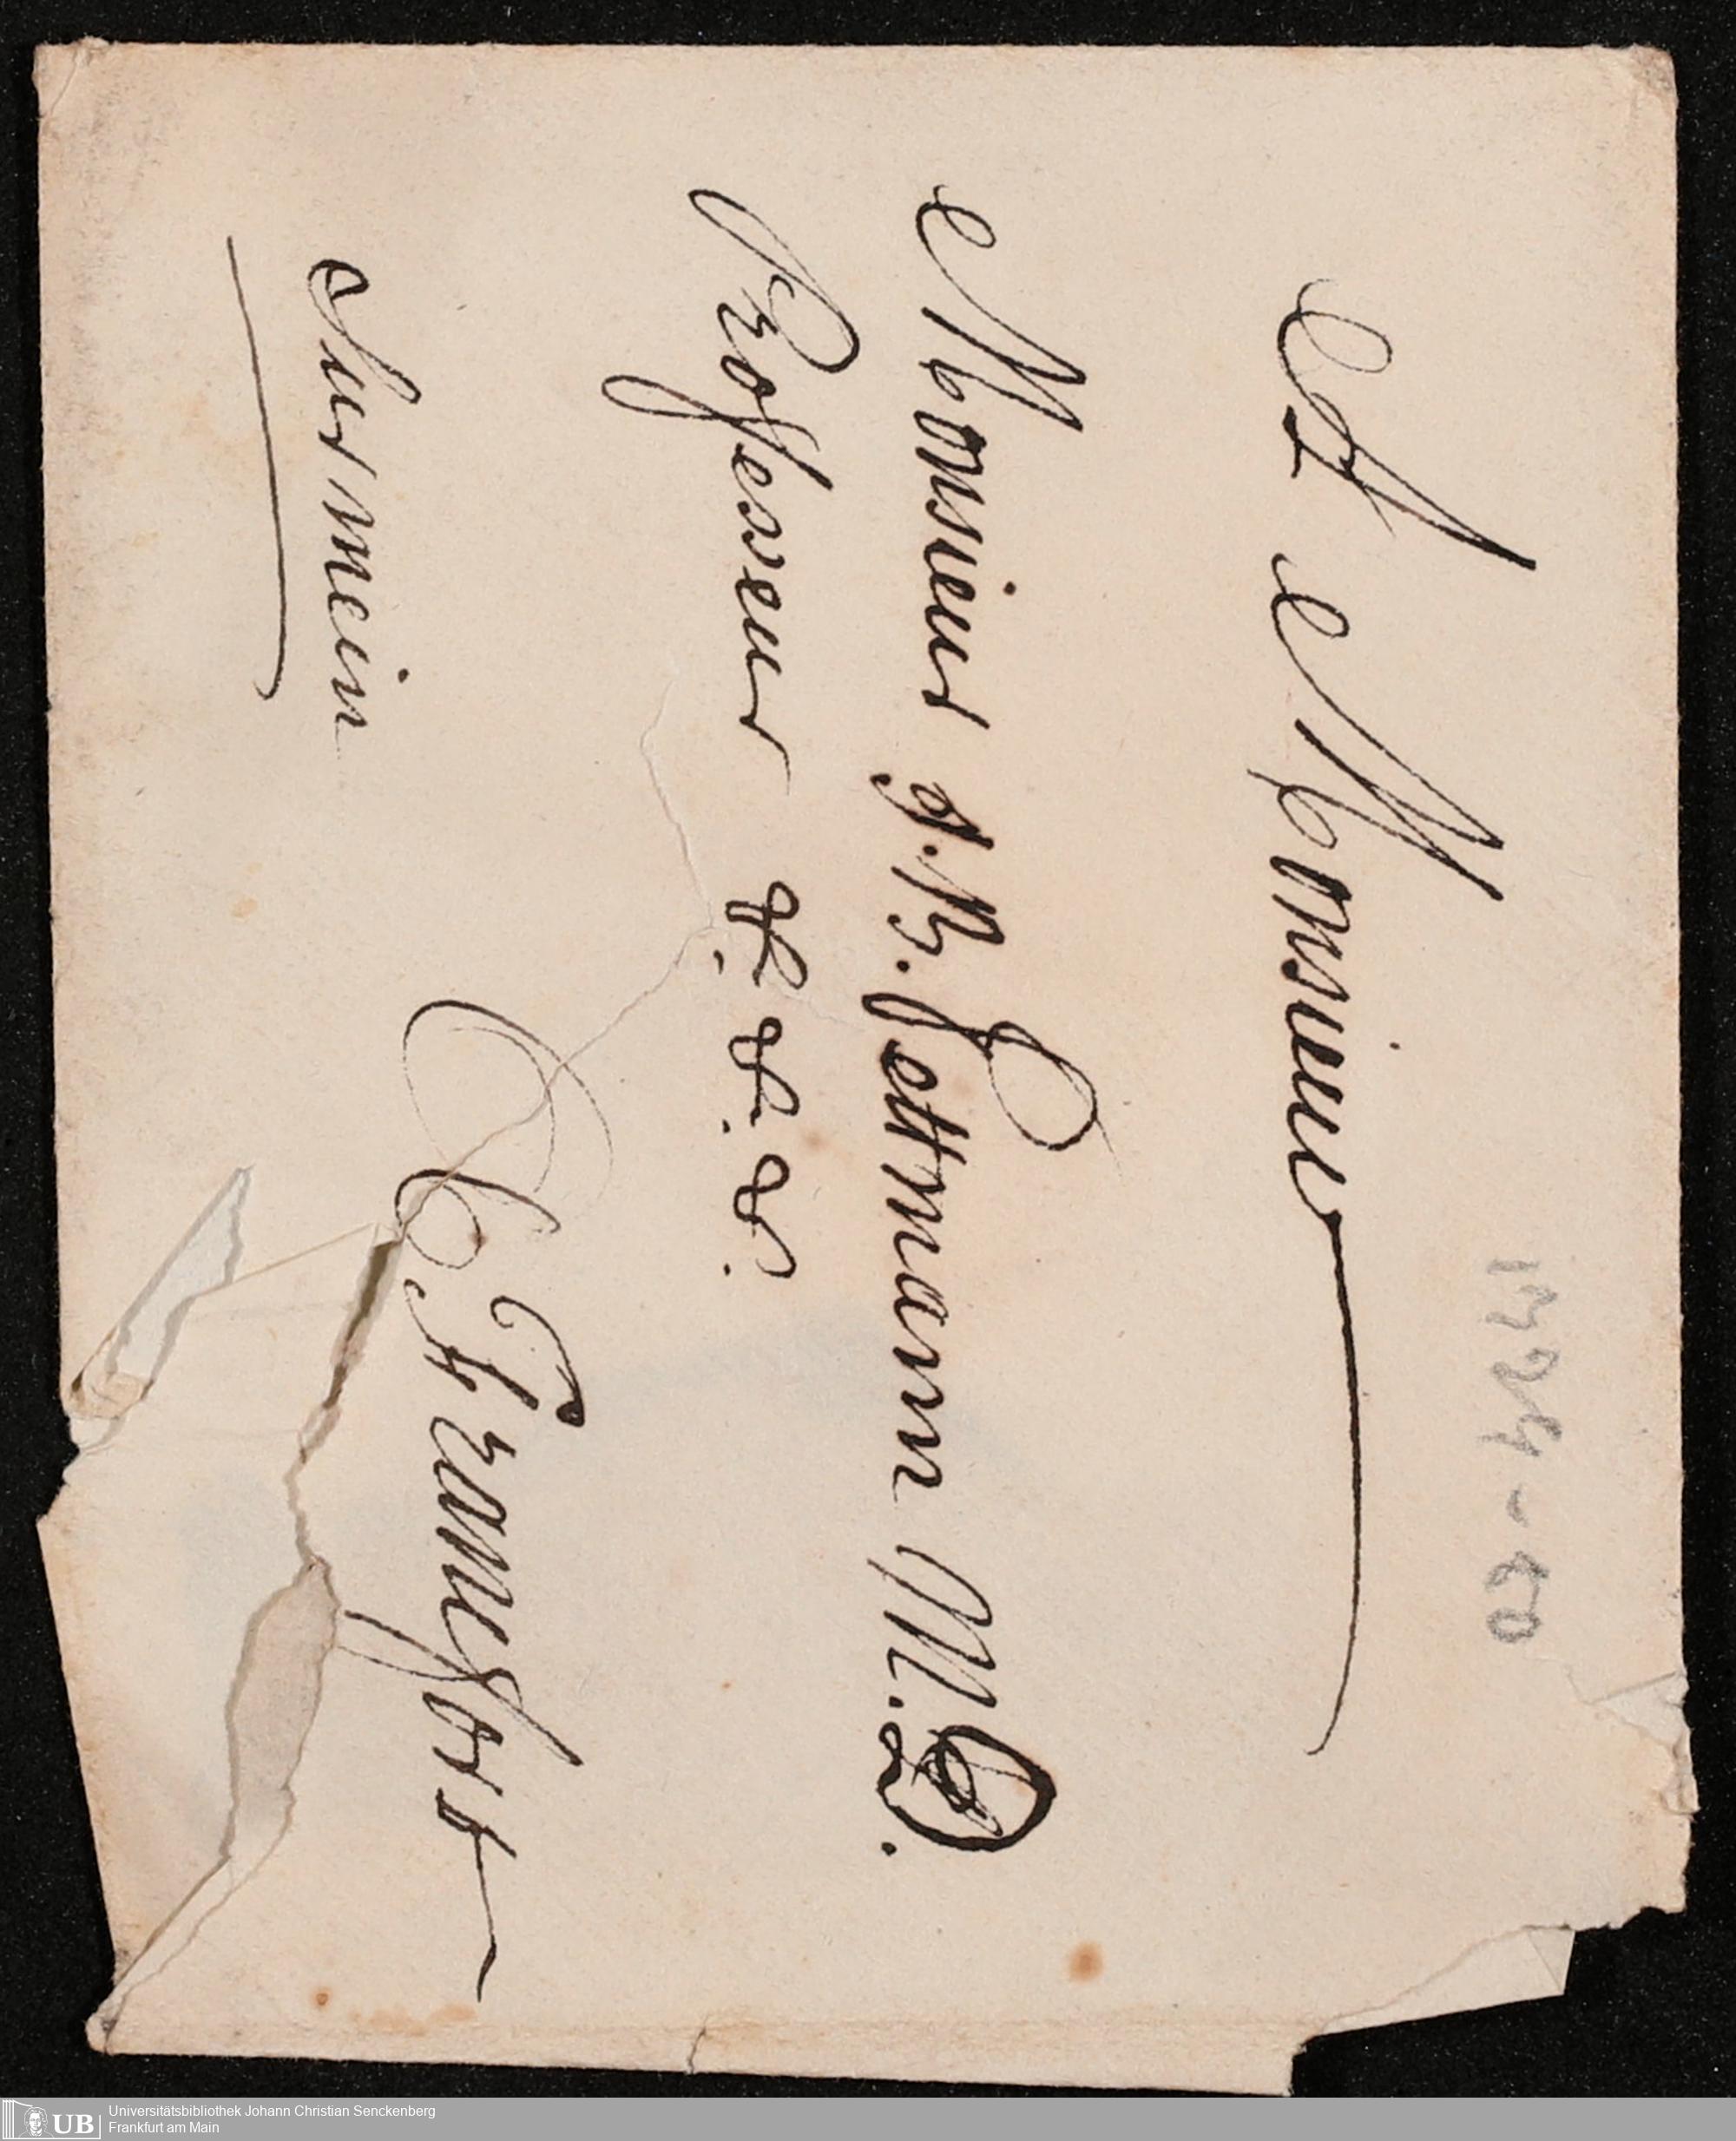 1724-50
A Monsieur
Monsieur A. B. Pettmann M. D.
Professeur
à Francfort
Sur mein
Universitätsbibliothek Johann Christian Senckenberg
Frankfurt am Main
UB